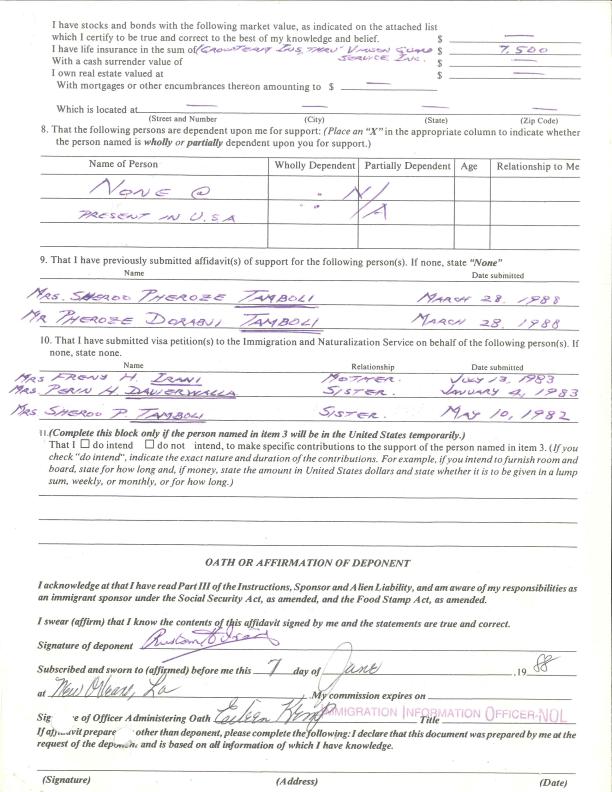 I have stocks and bonds with the following market value, as indicated on the attached list
which I certify to be true and correct to the best of my knowledge and belief. $ —
I have life insurance in the sum of (GROWTERM INS, THRU' VINSON GUARD $ 7,500
With a cash surrender value of SERVICE INC. $ —
I own real estate valued at $ —
With mortgages or other encumbrances thereon amounting to $ —
Which is located at — — — —
(Street and Number) (City) (State) (Zip Code)
8. That the following persons are dependent upon me for support: (Place an "X" in the appropriate column to indicate whether
the person named is wholly or partially dependent upon you for support.)
Name of Person Wholly Dependent Partially Dependent Age Relationship to Me
NONE @ N/
PRESENT IN U.S.A /A
9. That I have previously submitted affidavit(s) of support for the following person(s). If none, state "None"
Name Date submitted
MRS. SHEROO PHEROZE TAMBOLI MARCH 28. 1988
MR PHEROZE DORABJI TAMBOLI MARCH 28. 1988
10. That I have submitted visa petition(s) to the Immigration and Naturalization Service on behalf of the following person(s). If
none, state none.
Name Relationship Date submitted
MRS FRENY H. IRANI MOTHER. JULY 13, 1983
MRS. PERIN H. DAWERWALLA SISTER. JANUARY 4, 1983
MRS SHEROO P. TAMBOLI SISTER. MAY 10, 1982
11. (Complete this block only if the person named in item 3 will be in the United States temporarily.)
That I ☐ do intend ☐ do not intend, to make specific contributions to the support of the person named in item 3. (If you
check "do intend", indicate the exact nature and duration of the contributions. For example, if you intend to furnish room and
board, state for how long and, if money, state the amount in United States dollars and state whether it is to be given in a lump
sum, weekly, or monthly, or for how long.)
OATH OR AFFIRMATION OF DEPONENT
I acknowledge at that I have read Part III of the Instructions, Sponsor and Alien Liability, and am aware of my responsibilities as
an immigrant sponsor under the Social Security Act, as amended, and the Food Stamp Act, as amended.
I swear (affirm) that I know the contents of this affidavit signed by me and the statements are true and correct.
Signature of deponent Rustom H Irani
Subscribed and sworn to (affirmed) before me this 7 day of June ,19 88
at New Orleans, La My commission expires on
Sig e of Officer Administering Oath Eileen Kemp IMMIGRATION INFORMATION OFFICER-NOL Title
If affidavit prepare other than deponent, please complete the following: I declare that this document was prepared by me at the
request of the deponent and is based on all information of which I have knowledge.
(Signature) (Address) (Date)